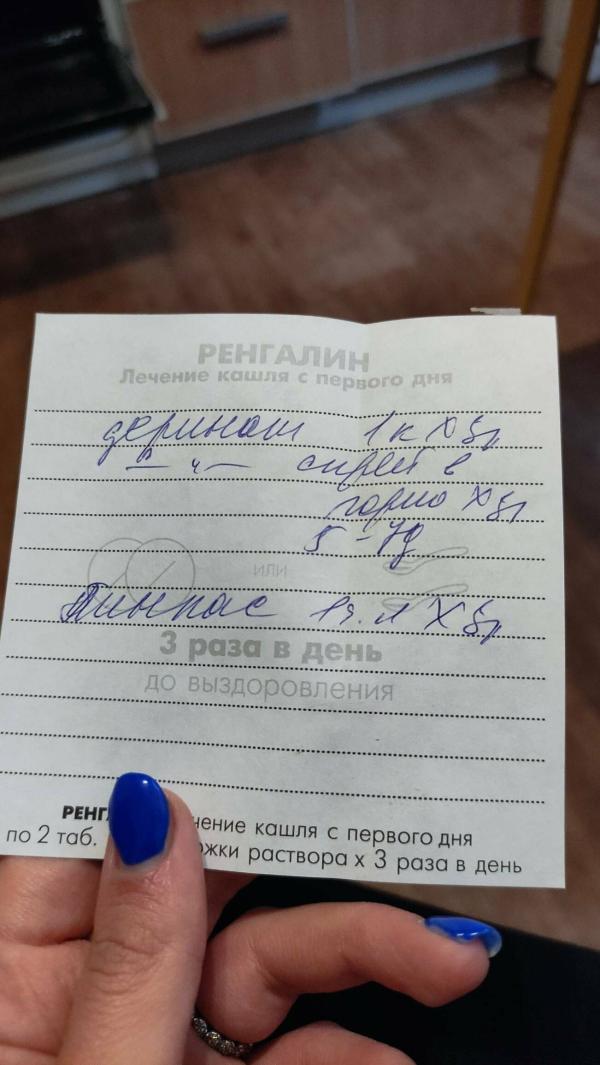 РЕНГАЛИН
Лечение кашля с первого дня
деринат 1 к X
— " — спрей в
горло X
5 - 7д
или
Линкас 1 ч. л X
3 раза в день
до выздоровления
РЕНГ чение кашля с первого дня
по 2 таб. ожки раствора х 3 раза в день